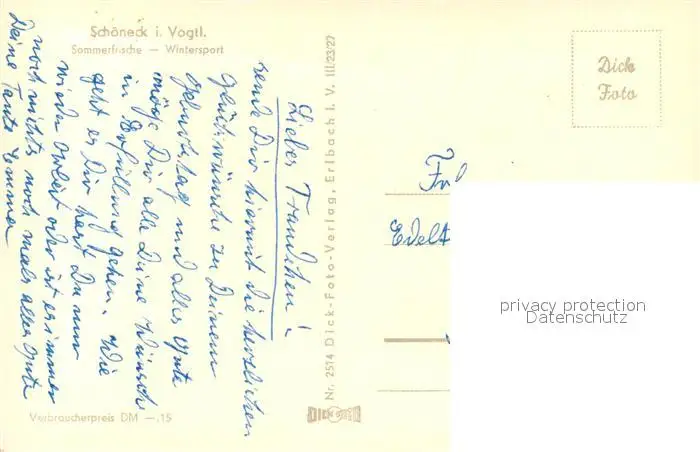 Schöneck i. Vogtl.
Sommerfrische — Wintersport
Liebes Traudchen!
sende Dir hiermit die herzlichen
Glückwünsche zu Deinem
Geburtstag und alles Gute
möge Dir alle Deine Wünsche
in Erfüllung gehen. Wie
geht es Dir hast Du nun
wieder Arbeit oder ist es immer
noch nichts noch mals alles Gute
Deine Tante Emma
Verbraucherpreis DM —.15
Nr. 2514 Dick-Foto-Verlag, Erlbach i. V. III/23/27
DICK
Dick
Foto
Edelt
privacy protection
Datenschutz